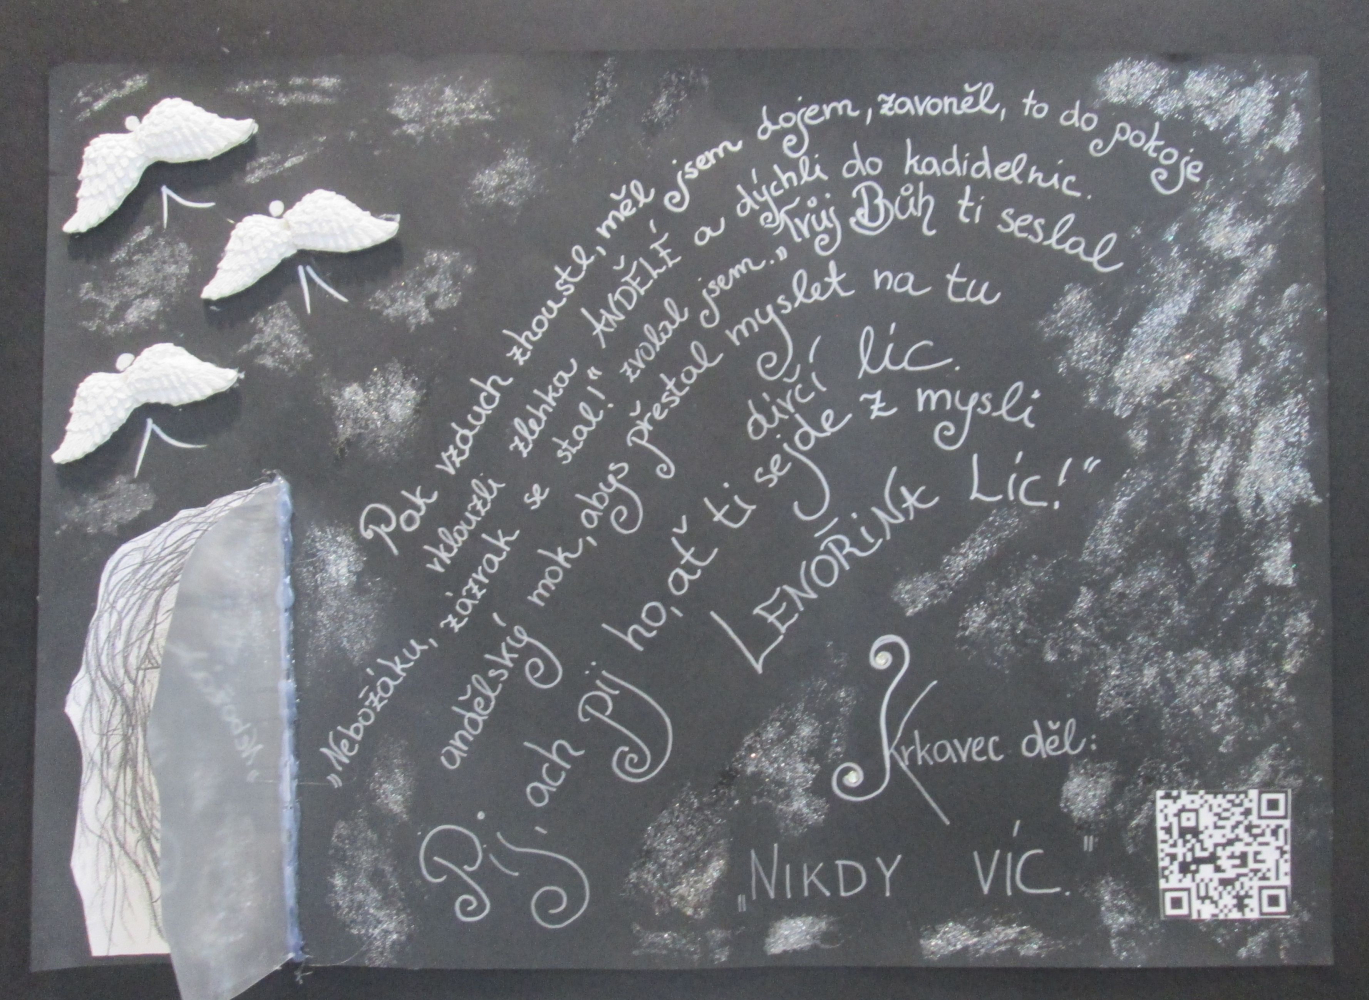 Pak vzduch zhoustl, měl jsem dojem, zavoněl, to do pokoje
vklouzli zlehka ANDĚLÉ a dýchli do kadidelnic.
„Nebožáku, zázrak se stal!“ zvolal jsem. „Tvůj Bůh ti seslal
andělský mok, abys přestal myslet na tu
dívčí líc.
Pij, ach pij ho, ať ti sejde z mysli
LENOŘINA LÍC!“
Krkavec děl:
„NIKDY VÍC.“